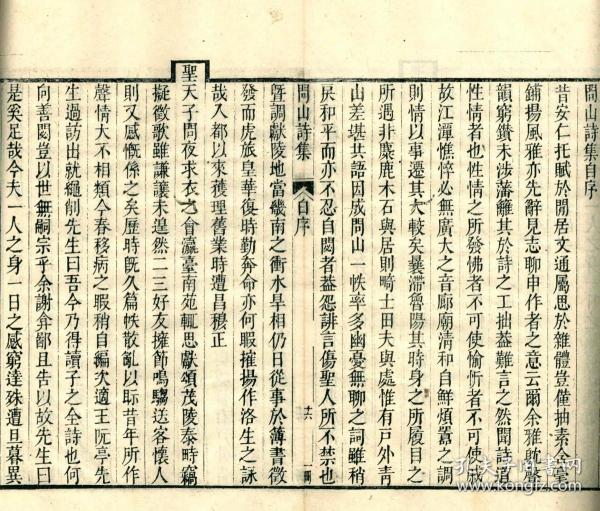 問山詩集自序
昔安仁托賦於閒居文通屬思於雜體豈僅抽素含毫
鋪揚風雅亦先辭見志聊申作者之意云爾余雅躭聲
韻窮鑽未涉藩籬其於詩之工拙葢難言之然聞詩道
性情者也性情之所發佛者不可使愉忻者不可使戚
故江潭憔悴必無廣大之音廊廟清和自鮮煩囂之調
則情以事遷其大較矣曩滯魯陽其時身之所履目之
所遇非麋鹿木石與居則畸土田夫與處惟有戸外靑
山差堪共語因成問山一帙率多幽憂無聊之詞雖稍
戾和平而亦不忍自閟者葢怨誹言傷聖人所不禁也
問山詩集
自序
旣調獻陵地當畿南之衝水旱相仍日從事於薄書徵
發而虎旅皇華復時勤奔命亦何暇摧揚作洛生之詠
哉入都以來䕶理舊業時遭昌穆正
聖天子問夜求衣之會瀛臺南苑輒思獻頌茂陵泰畤竊
擬徵歌雖謙讓未遑然一二三好友擁節鳴騶送客懷人
則又感慨係之矣歴時旣久篇帙散亂以眎昔年所作
聲情大不相類今春移病之暇稍自編次適王阮亭先
生過訪出就繩削先生曰吾今乃得讀子之全詩也何
向善閟豈以世無嗣宗乎余謝弇鄙且告以故先生曰
是奚足哉今夫一人之身一日之感窮達殊遭旦暮異
孔夫子旧书网